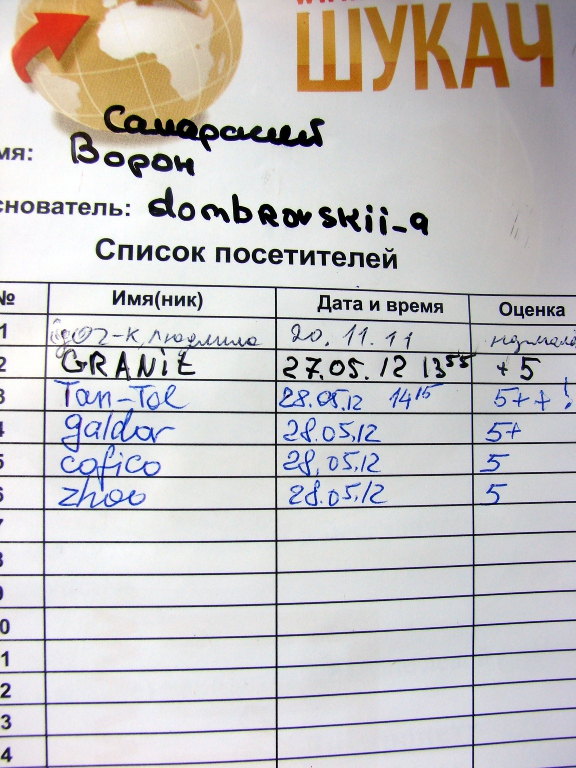 ШУКАЧ
Самарский
мя: Ворон
снователь: dombrovskii_a
Список посетителей
№ Имя(ник) Дата и время Оценка
1 igor-k, людмила 20.11.11
2 GRANiT 27.05.12 13 55 +5
3 Tan-Tol 28.05.12 14 15 5++!
4 galdor 28.05.12 5+
5 cofico 28.05.12 5
6 zhoo 28.05.12 5
7
8
9
0
1
2
3
4